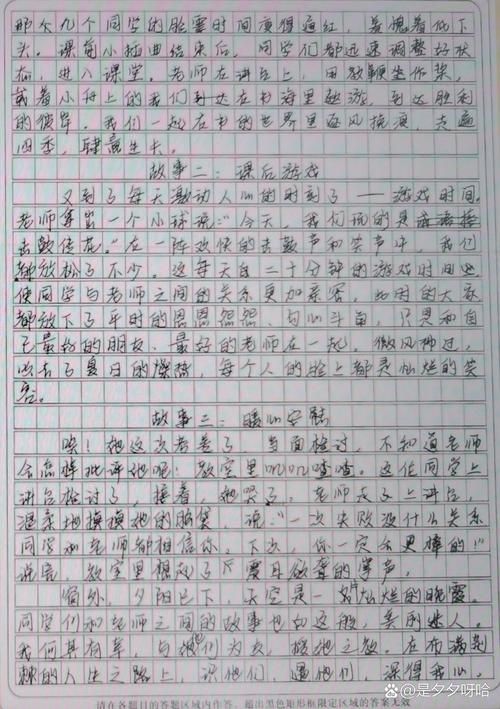 那么几个同学的脸霎时间废得通红，羞愧着低下
头。课前小插曲结束后，同学们都迅速调整好状
态，进入课堂。老师在讲台上，用教鞭坐作桨，
载着小舟上的我们到达在书海里遨游，到达胜利
的彼岸。我们一起在书的世界里逐风掩浪，走遍
四季，肆意生长。
故事二：课后游戏
又到了每天激动人心的时刻了——游戏时间。
老师拿出一个小球说："今天，我们玩的是
击鼓传花。"在一阵欢快的击鼓声和笑声中，我们
都放松了不少。这每天自二十分钟的游戏时间也
使同学与老师之间的关系更加亲密，此时的大家
都放下了平时的恩恩怨怨、勾心斗角，只畏和自
己最好的朋友、最好的老师在一起。微风拂过，
吹去了夏日的燥热，每个人的脸上都是灿烂的笑
容。
故事三：暖心安慰
唉！她这次考差了，当面检讨，不知道老师
会怎样批评她呢！教室里叽叽喳喳。这位同学上
讲台检讨了，接着，她哭了。老师走上讲台，
温柔地摸摸她的脑袋，说："一次失败没什么关系
同学和老师都相信你。下次，你一定会更棒的！"
说完，教室里响起了震耳欲聋的掌声。
窗外，夕阳已下，天空是一片灿烂的晚霞。
同学们和老师之间的故事也如这般，美丽迷人。
我何其有幸，与他们为友，授他之教。在布满荆
棘的人生之路上，识他们，遇他们，深得我心。
请在各题目的答题区域内作答，超出黑色矩形框限定区域的答案无效
@是夕夕呀哈